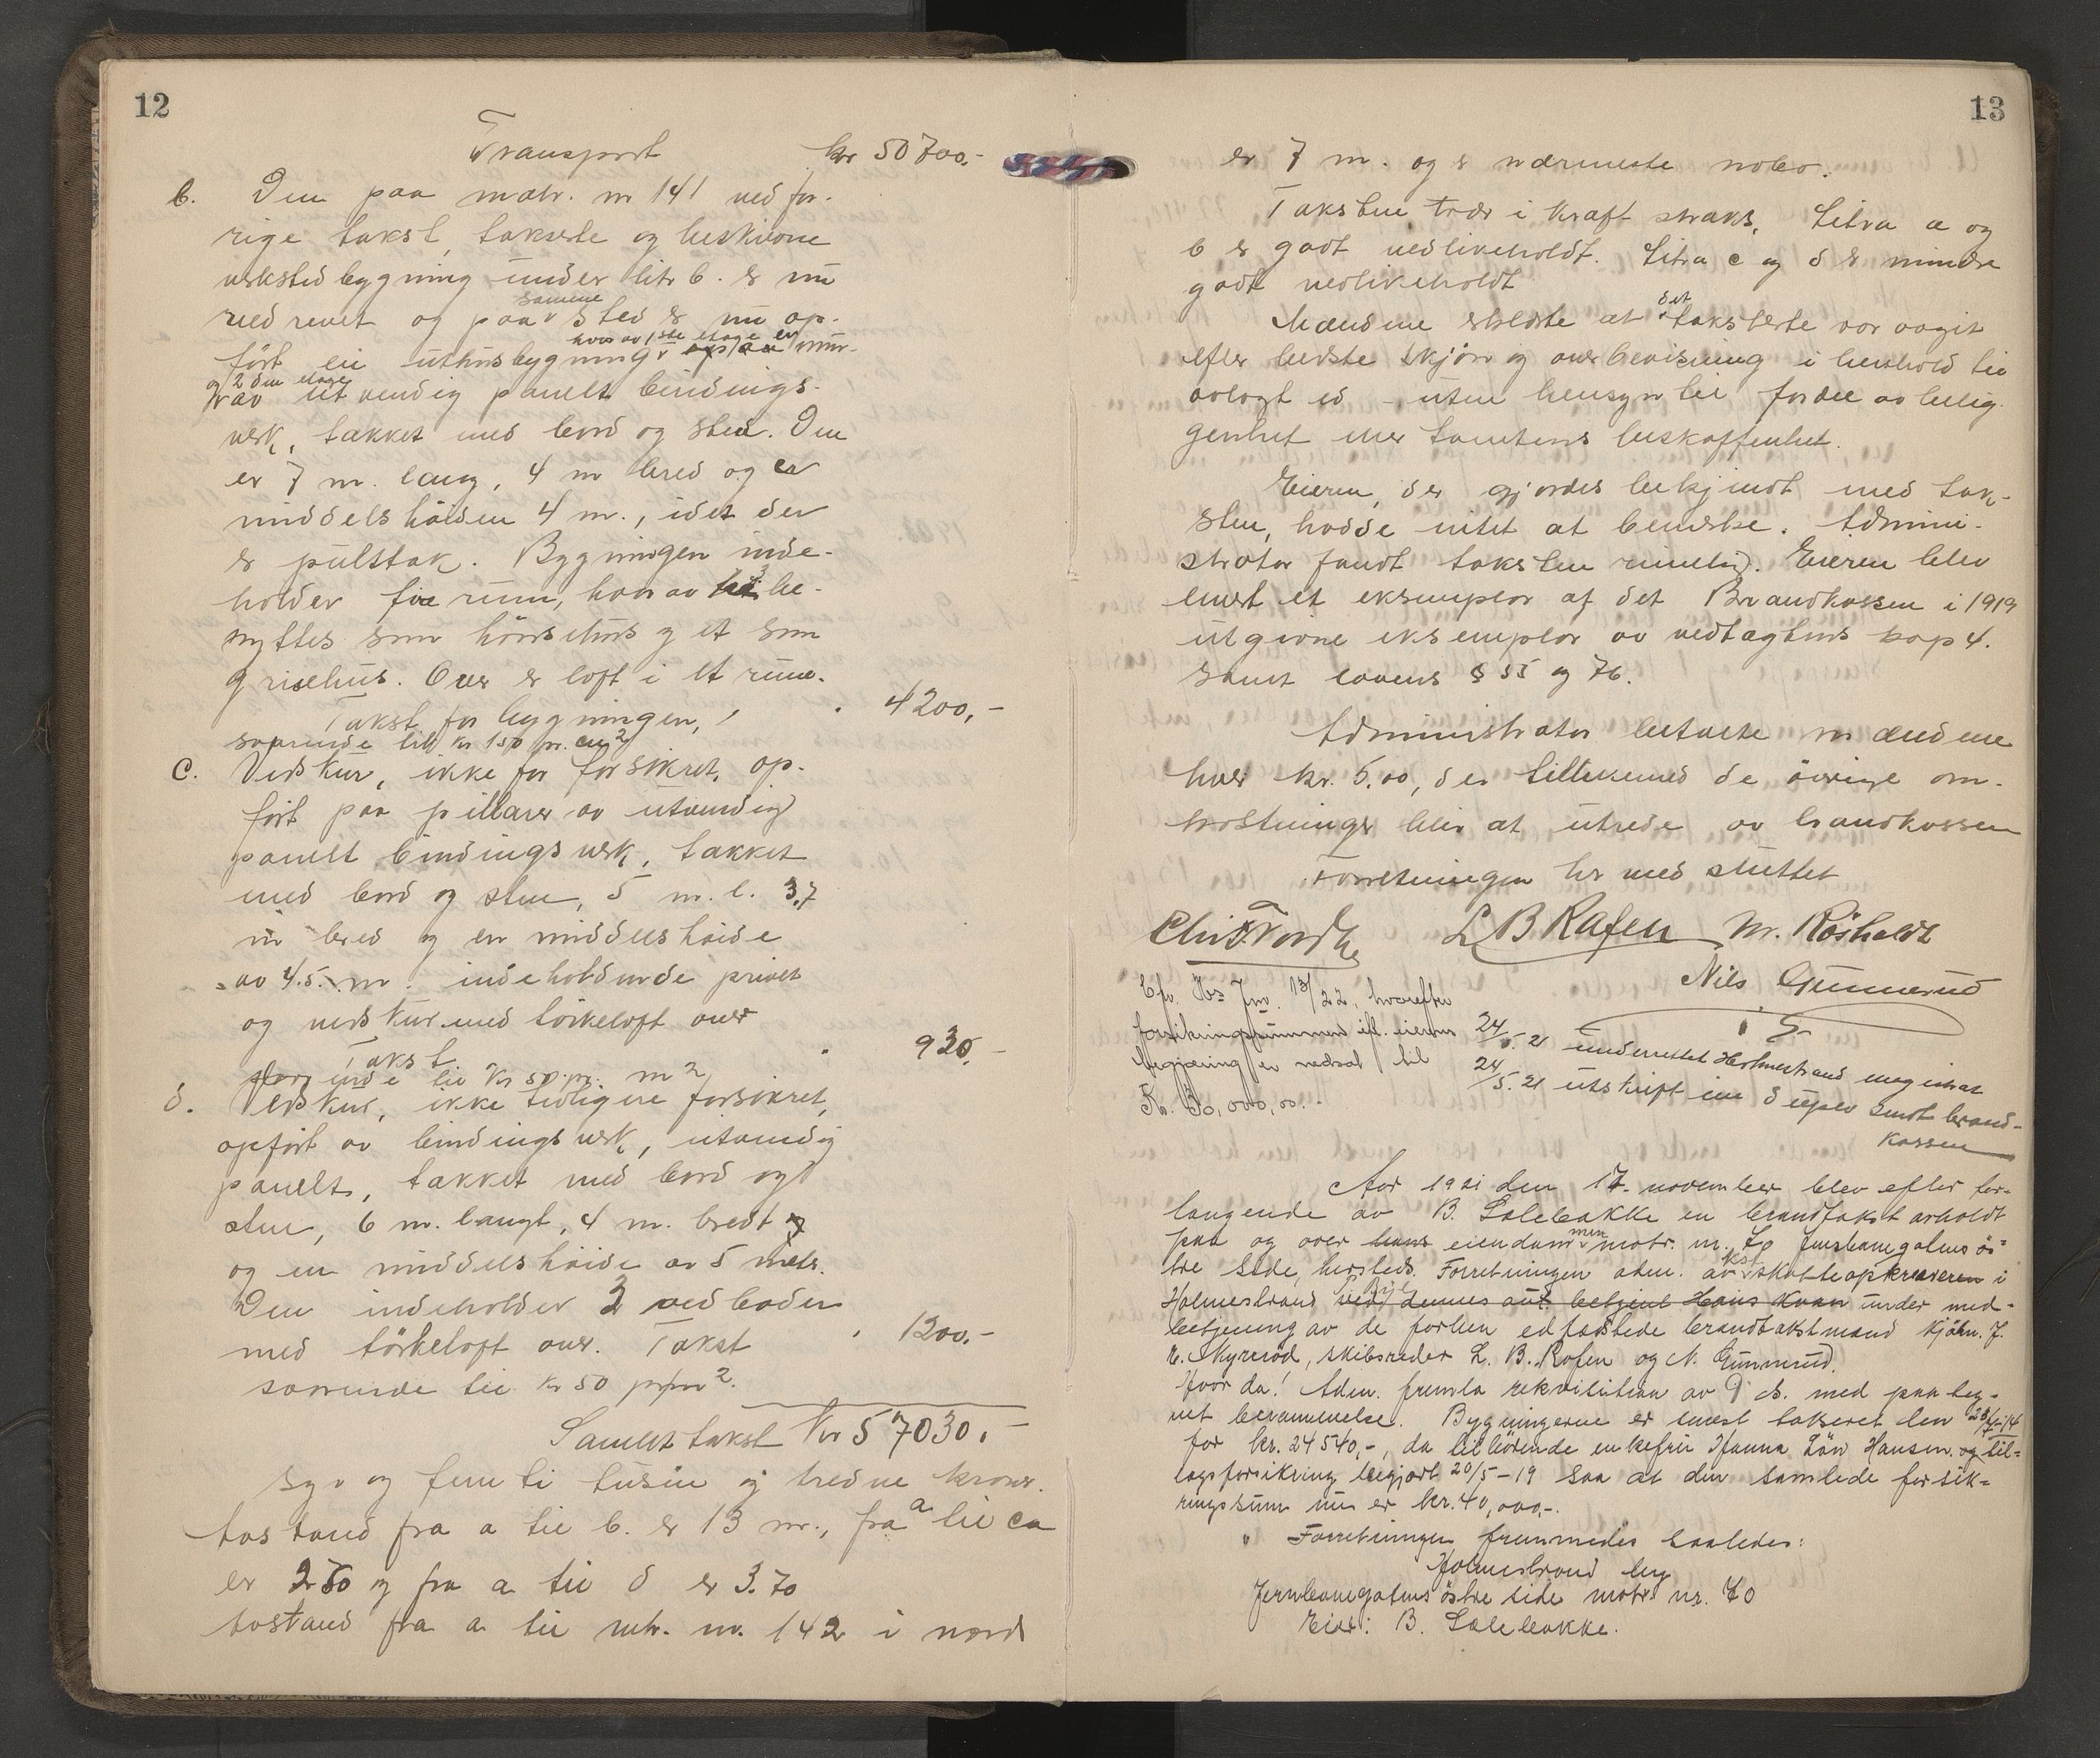 12
Transport kr 50700,-
b. Den paa matr. nr 141 ved for-
rige takst, takserte og beskrevne
verkstedbygning under litr b. er nu
nedrevet og paa samme sted er nu op-
ført en uthusbygning hvorav 1ste etage er av mur-
og 2den etage
av utvendig panelt bindings-
verk, tækket med bord og sten. Den
er 7 m. lang, 4 m bred og en
middelshøiden 4 m., idet der
er pulttak. Bygningen inde-
holder fire rum, hvorav 3 be-
nyttes som hønsehus og et som
grisehus. Over er loft i et rum.
Takst for bygningen, 4200,-
svarende til kr 150 pr. m2
c. Vedskur, ikke før forsikret, op-
ført paa pillarer av utvendig
panelt bindingsverk, tækket
med bord og sten, 5 m. l. 3,7
m bred og en middelshøide
av 4.5. m. indeholdende privet
og vedskur med tørkeloft over
Takst 930,-
svarende til kr 50 pr. m2
d. Vedskur, ikke tidligere forsikret,
opført av bindingsverk, utvendig
panelt, tækket med bord og
sten, 6 m. langt, 4 m. bredt
og en middelshøide av 5 meter.
Den indeholder 2 vedboder
med tørkeloft over. Takst 1200,-
svarende til kr 50 pr m2.
Samlet takst Kr 57030.-
syv og femti tusin og tredve kroner.
Avstand fra a til b. er 13 m., fra a til c
er 2.70 og fra a til d er 3.70
Avstand fra a til mtr. nr. 142 i nord
13
er 7 m. og er nærmeste nabo.
Taksten trær i kraft straks. Litra a og
b er godt vedlikeholdt. Litra c og d er mindre
godt vedlikeholdt
Mændene erklærte at det takserte var avgit
efter bedste skjøn og overbevisning i henhold til
avlagt ed - uten hensyn til fordel av belig-
genhet eller tomtens beskaffenhet.
Eieren, der gjordes bekjendt med tak-
sten, hadde intet at bemerke. Admini-
strator fandt taksten rimelig. Eieren blev
levert et eksemplar af det Brandkassen i 1919
utgivne eksemplar av vedtægtens kap 4.
samt lovens § 55 og 76.
Administrator betalte mændene
hver kr. 5.00, der tillikemed de øvrige om-
kostninger blir at utrede av brandkassen
Forretningen her med sluttet
Chr. F. Nordhe L B Rafen M. Røsholdt
Nils Gunnerud
Cfr. Hs Jnr. 13/22, hvorefter
forsikringssummen eft. eierens
begjæring er nedsat til
Kr. 30,000,00.
24/5. 21 underrettet Holmestrand magistrat
24/5. 21 utskrift in duplo sendt brand-
kassen
Aar 1921 den 17. november blev efter for-
langende av B. Solebakke en brandtakst avholdt
paa og over hans eiendommen matr. nr. 70 Jernbanegatens øs-
tre side, hersteds. Forretningen adm. av kst. skatteopkræveren i
Holmestrand ved dennes aut. betjent Hans Kvan under med-
betjening av de forhen edfæstede brandtakstmænd kjøbm. J.
E. Myresød, skibsreder L. B. Rafen og N. Gunnerud.
Hvorda! Adm. fremla rekvisition av d. d. med paateg-
net berammelse. Bygningerne er senest takseret den 23/7-14
for kr. 24540,-, da tilhørende enkefru Hanna Løv Hansen og til-
lægsforsikring begjært 20/5-19 saa at den samlede forsik-
ringssum nu er kr. 40,000,-.
Forretningen fremmedes saaledes:
Holmestrand by
Jernbanegatens østre side matr. nr. 70
Eier: B. Solebakke.